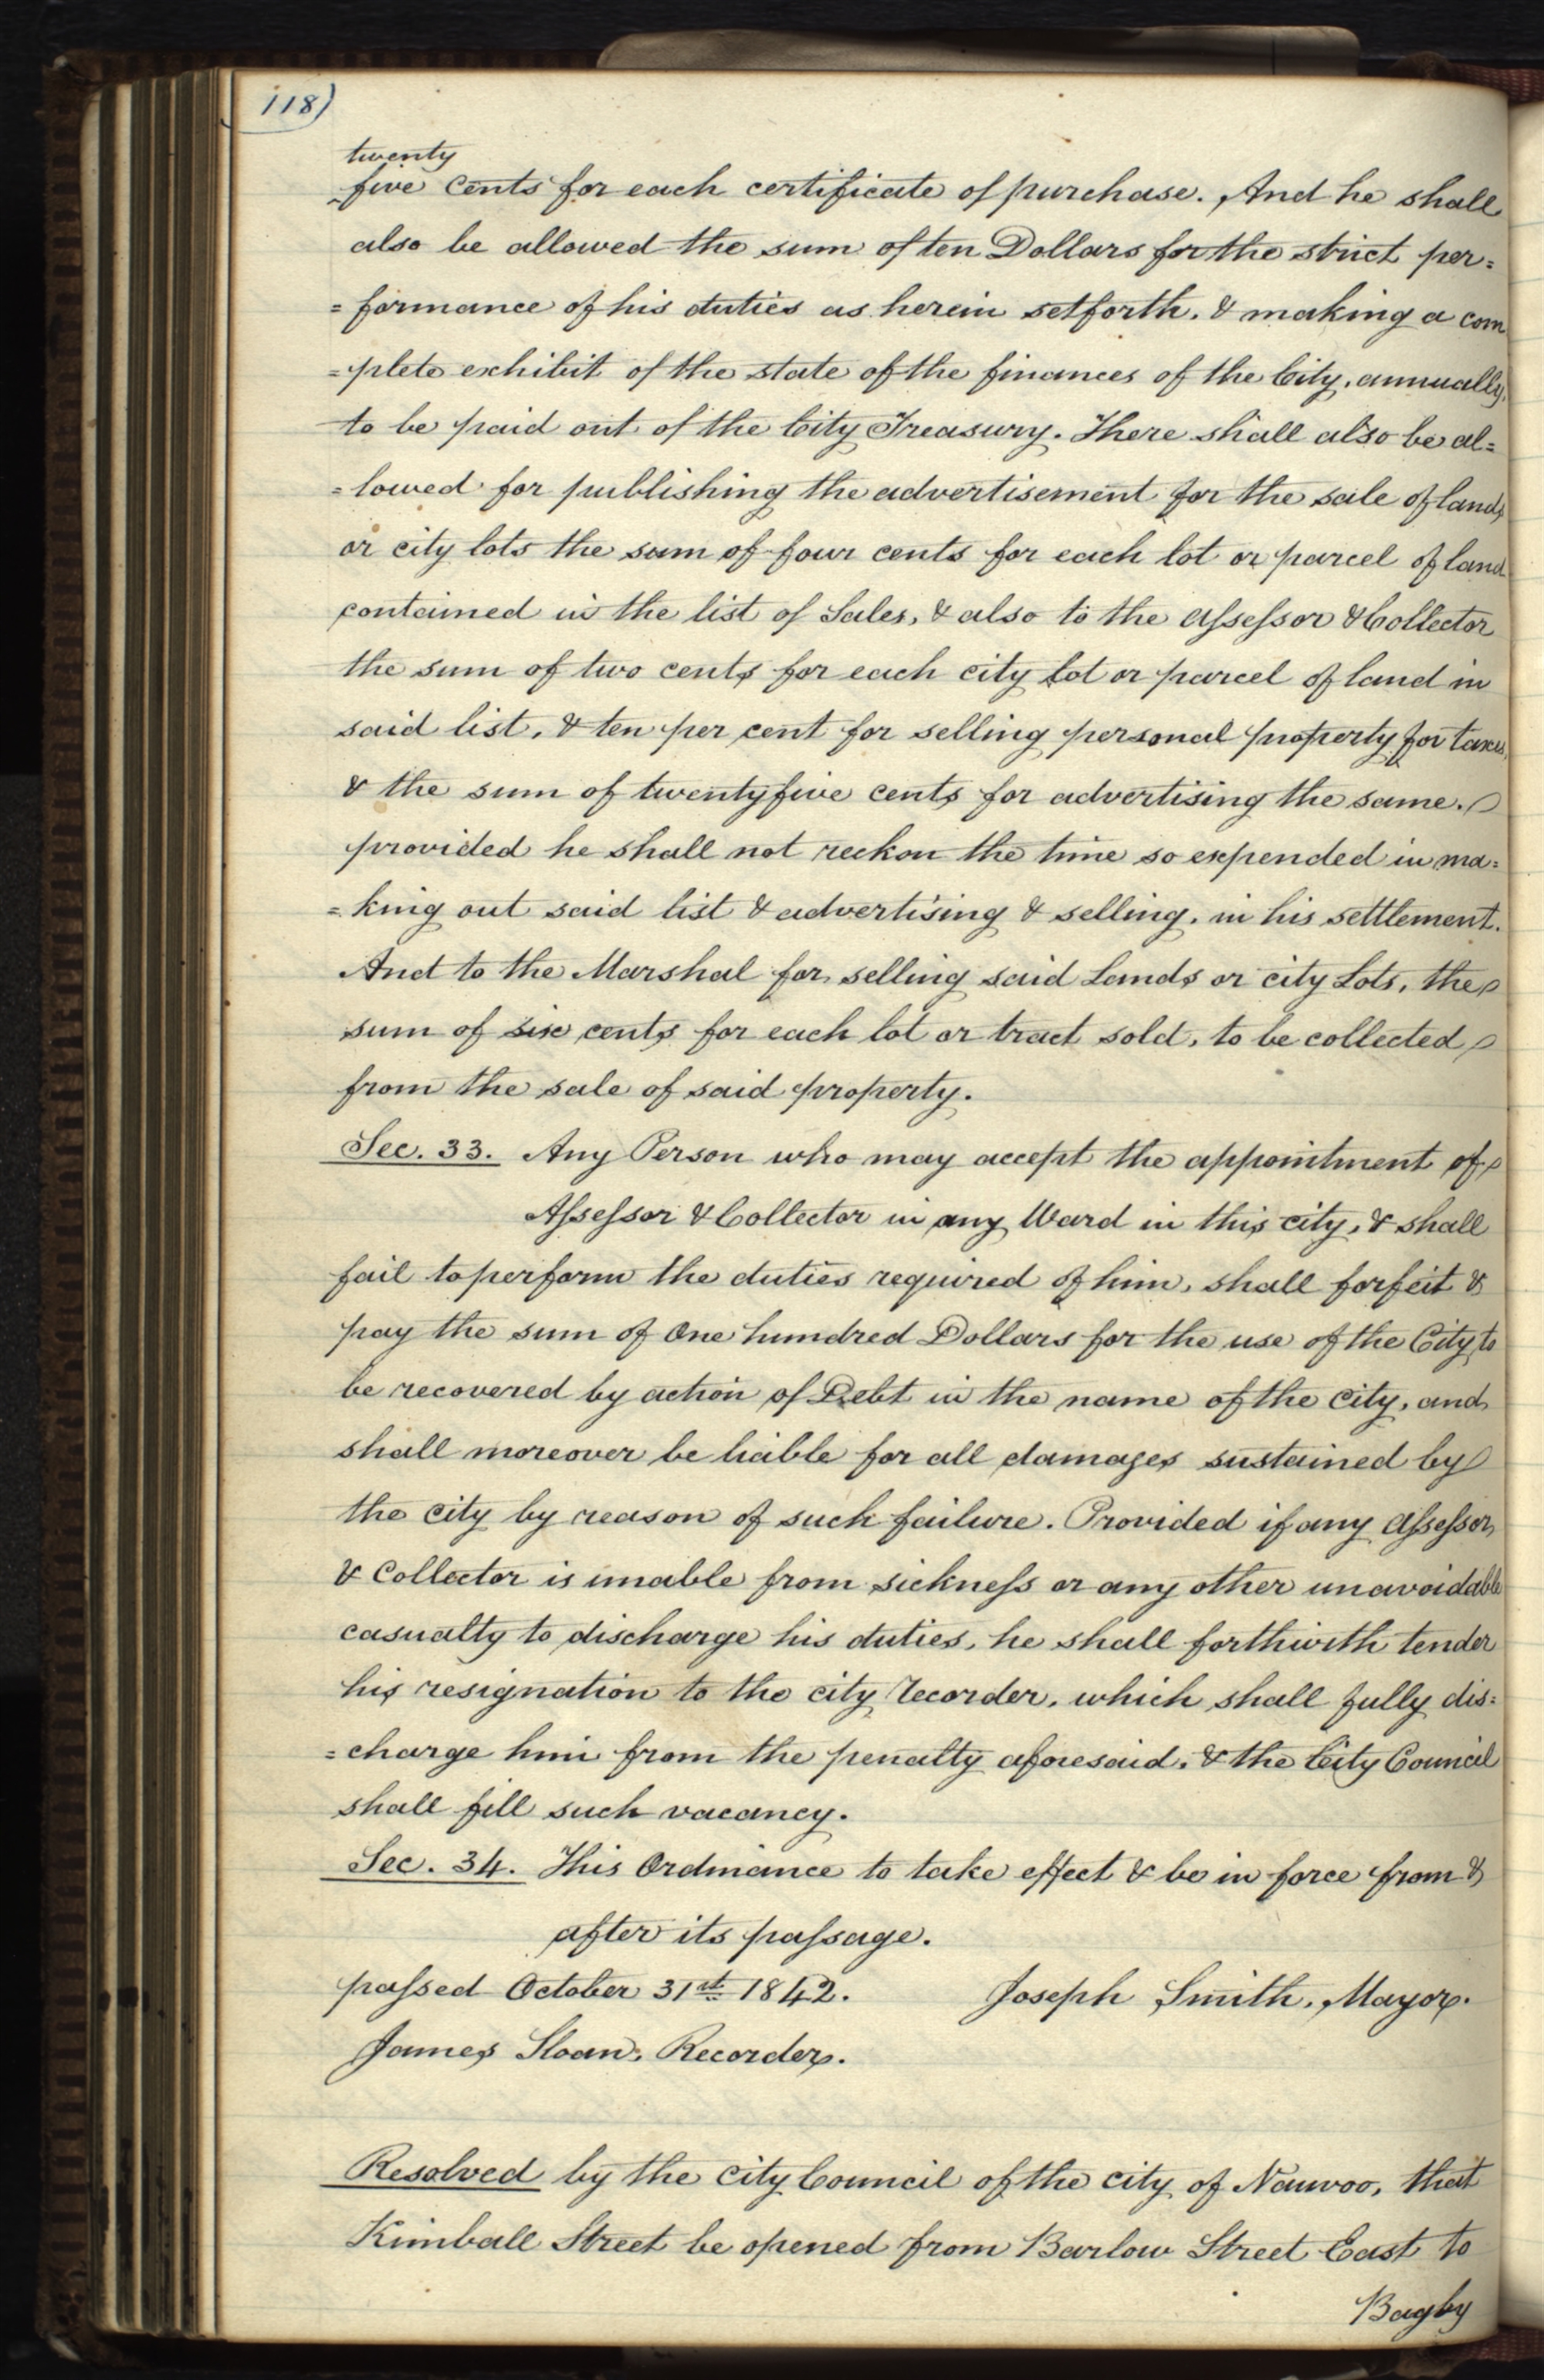 118)
twenty
five cents for each certificate of purchase. And he shall
also be allowed the sum of ten Dollars for the strict per=
=formance of his duties as herein setforth. & making a com
=plete exhibit of the state of the finances of the City, annually,
to be paid out of the City Treasury. There shall also be al=
=lowed for publishing the advertisement for the sale of lands
or city lots the sum of four cents for each lot or parcel of land
contained in the list of Sales, & also to the Assessor & Collector
the sum of two cents for each city lot or parcel of land in
said list, & ten per cent for selling personal property for taxes,
& the sum of twentyfive cents for advertising the same.
provided he shall not reckon the time so expended in ma=
=king out said list & advertising & selling, in his settlement.
And to the Marshal for selling said Lands or city Lots, the
sum of six cents for each lot or tract sold, to be collected
from the sale of said property.
Sec. 33. Any Person who may accept the appointment of
Assessor & Collector in any Ward in this city, & shall
fail to perform the duties required of him, shall forfeit &
pay the sum of One hundred Dollars for the use of the City, to
be recovered by action of Debt in the name of the city, and
shall moreover be liable for all damages sustained by
the city by reason of such failure. Provided if any Assessor
& Collector is unable from sickness or any other unavoidable
casualty to discharge his duties, he shall forthwith tender
his resignation to the city recorder, which shall fully dis=
=charge him from the penalty aforesaid, & the City Council
shall fill such vacancy.
Sec. 34. This Ordinance to take effect & be in force from &
after its passage.
passed October 31st 1842. Joseph Smith, Mayor.
James Sloan, Recorder.
Resolved by the City Council of the city of Nauvoo, that
Kimball Street be opened from Barlow Street East to
Bagby